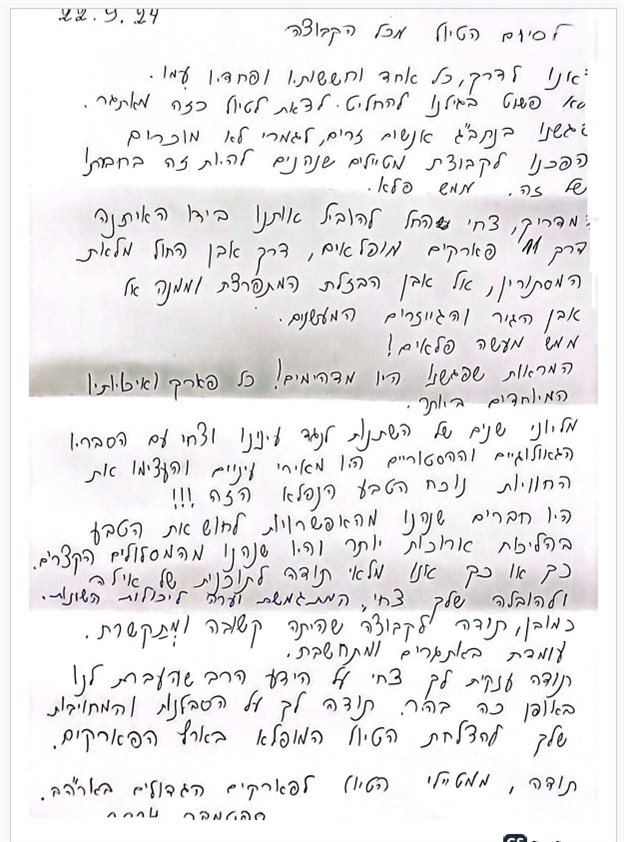 22.9.24
לסיום הטיול מכל הקבוצה
לדרך, כל אחד וחששותיו ופחדיו עמו.
לא פשוט בגילנו להחליט לצאת לטיול כזה מאתגר.
נפגשנו בנתב"ג אנשים זרים, לגמרי לא מוכרים
הפכנו לקבוצת מטיילים שנהנים להיות זה בחברתו
של זה. ממש פלא.
המדריך, צחי החל להוביל אותנו בידו האיתנה
דרך 11 פארקים מופלאים, דרך אבן החול מלאת
המסתורין, אל אבן הבזלת המתפרצת וממנה אל
אבן הגיר והגייזרים המעשנים.
ממש מעשה פלאים!
המראות שפגשנו היו מדהימים! כל פארק ואיכויותיו
המיוחדים ביותר.
מליוני שנים של השתנות לנגד עינינו וצחי עם הסבריו
הגאולוגיים וההסטוריים היו מאירי עיניים והעצימו את
החוויות נוכח הטבע הנפלא הזה!!!
היו חברים שנהנו מהאפשרויות לחוש את הטבע
בהליכות ארוכות יותר והיו שנהנו מהמסלולים הקצרים.
כך או כך אנו מלאי תודה לתוכנית של אילה
ולהובלה שלך צחי, המתגמשת וערה ליכולות השונות.
כמובן, תודה לקבוצה שהיתה קשובה ומתקשרת.
עומדת באתגרים ומתחשבת.
תודה ענקית לך צחי על הידע הרב שהעברת לנו
באופן כה בהיר. תודה לך על הסבלנות והמחויבות
שלך להצלחת הטיול המופלא בארץ הפארקים.
תודה, ממטיילי הטיול לפארקים הגדולים בארה"ב.
ספטמבר 2024